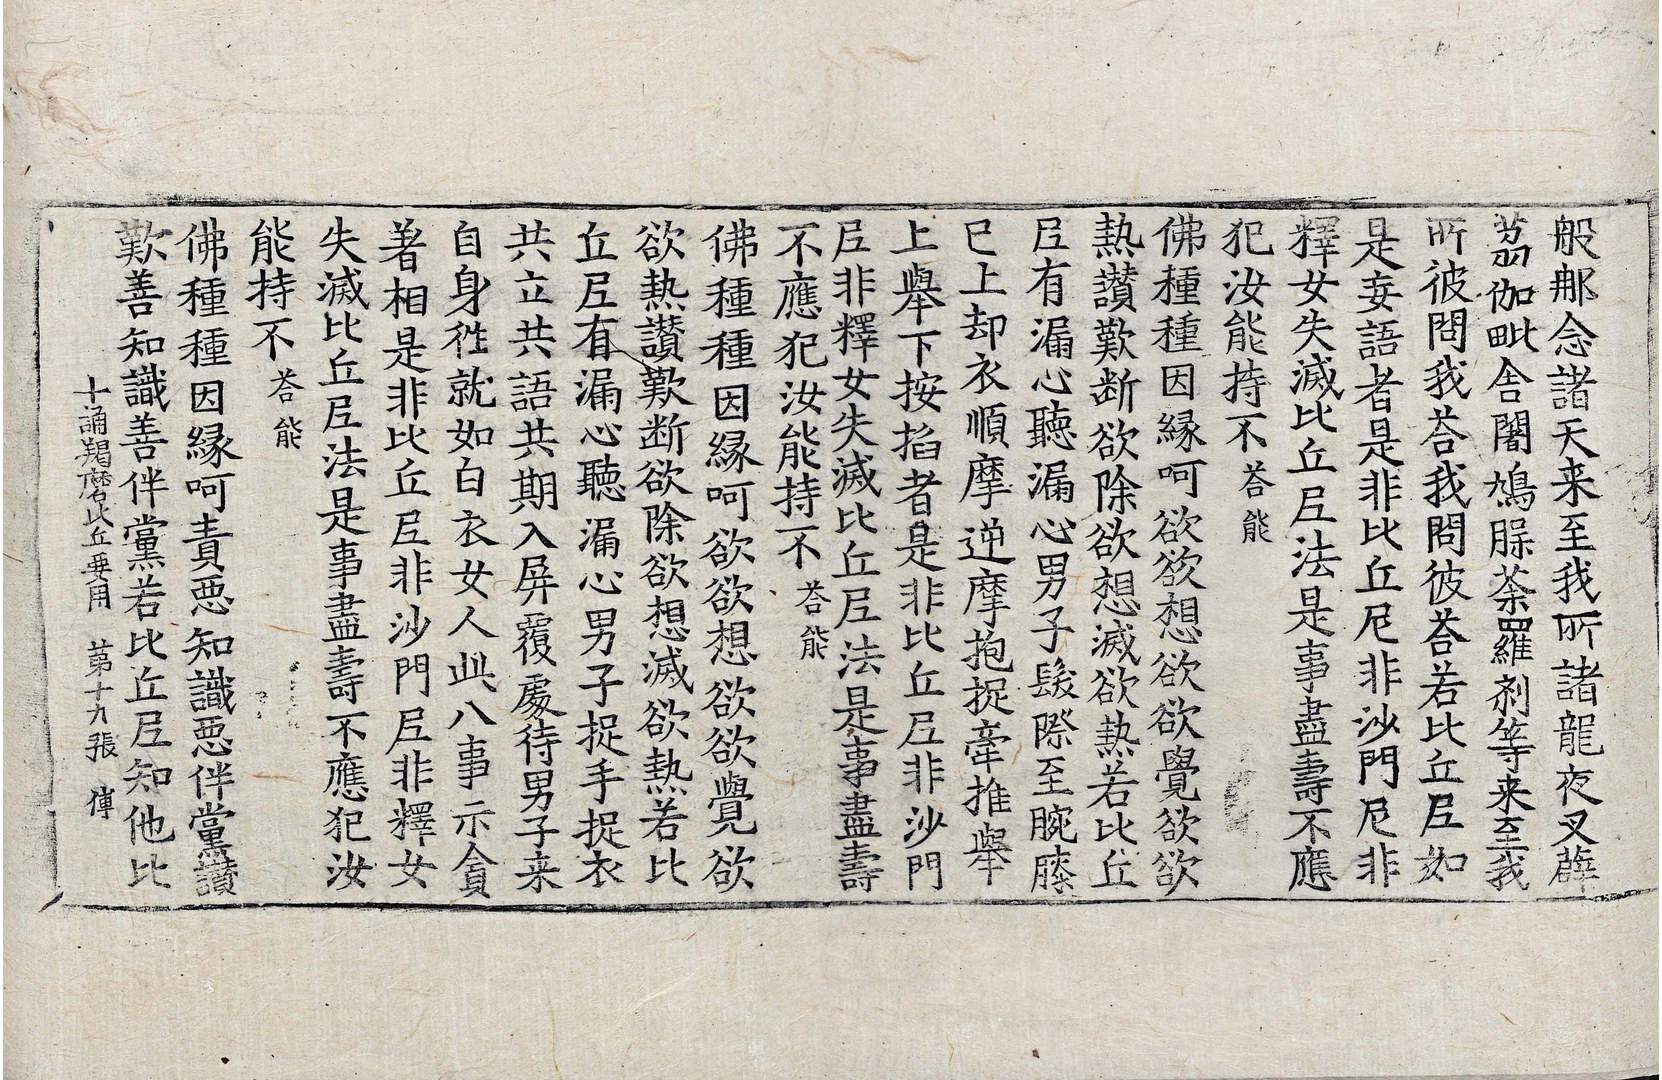 般那念諸天来至我所諸龍夜叉薜
荔伽毗舍闍鳩脲荼羅剎等来至我
所彼問我荅我問彼荅若比丘𡰱如
是妄語者是非比丘尼非沙門尼非
釋女失滅比丘𡰱法是事盡壽不應
犯汝能持不荅能
佛種種因縁呵欲欲想欲欲覺欲欲
熱讃歎断欲除欲想滅欲熱若比丘
𡰱有漏心聽漏心男子髮際至腕膝
已上却衣順摩逆摩抱捉牽推舉
上舉下按掐者是非比丘𡰱非沙門
𡰱非釋女失滅比丘𡰱法是事盡壽
不應犯汝能持不荅能
佛種種因縁呵欲欲想欲欲覺欲
欲熱讃歎断欲除欲想滅欲熱若比
丘𡰱有漏心聽漏心男子捉手捉衣
共立共語共期入屏覆處待男子来
自身徃就如白衣女人此八事示貪
著相是非比丘𡰱非沙門𡰱非釋女
失滅比丘𡰱法是事盡壽不應犯汝
能持不荅能
佛種種因縁呵責悪知識悪伴黨讃
歎善知識善伴黨若比丘𡰱知他比
十誦羯磨比丘要用 苐十九張 俥